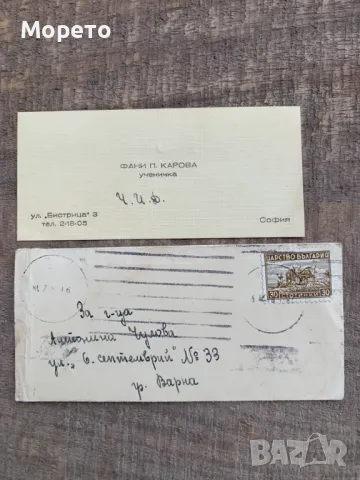 Морето
ФАНИ П. КАРОВА
ученичка
Ч. И. Ф.
ул. „Бистрица" 3
тел. 2-18-05
София
ЦАРСТВО БЪЛГАРИЯ
30 СТОТИНКИ 30
За г-ца
Антонина Чулова
ул. „6. септемврий" № 33
гр. Варна
BAZAR